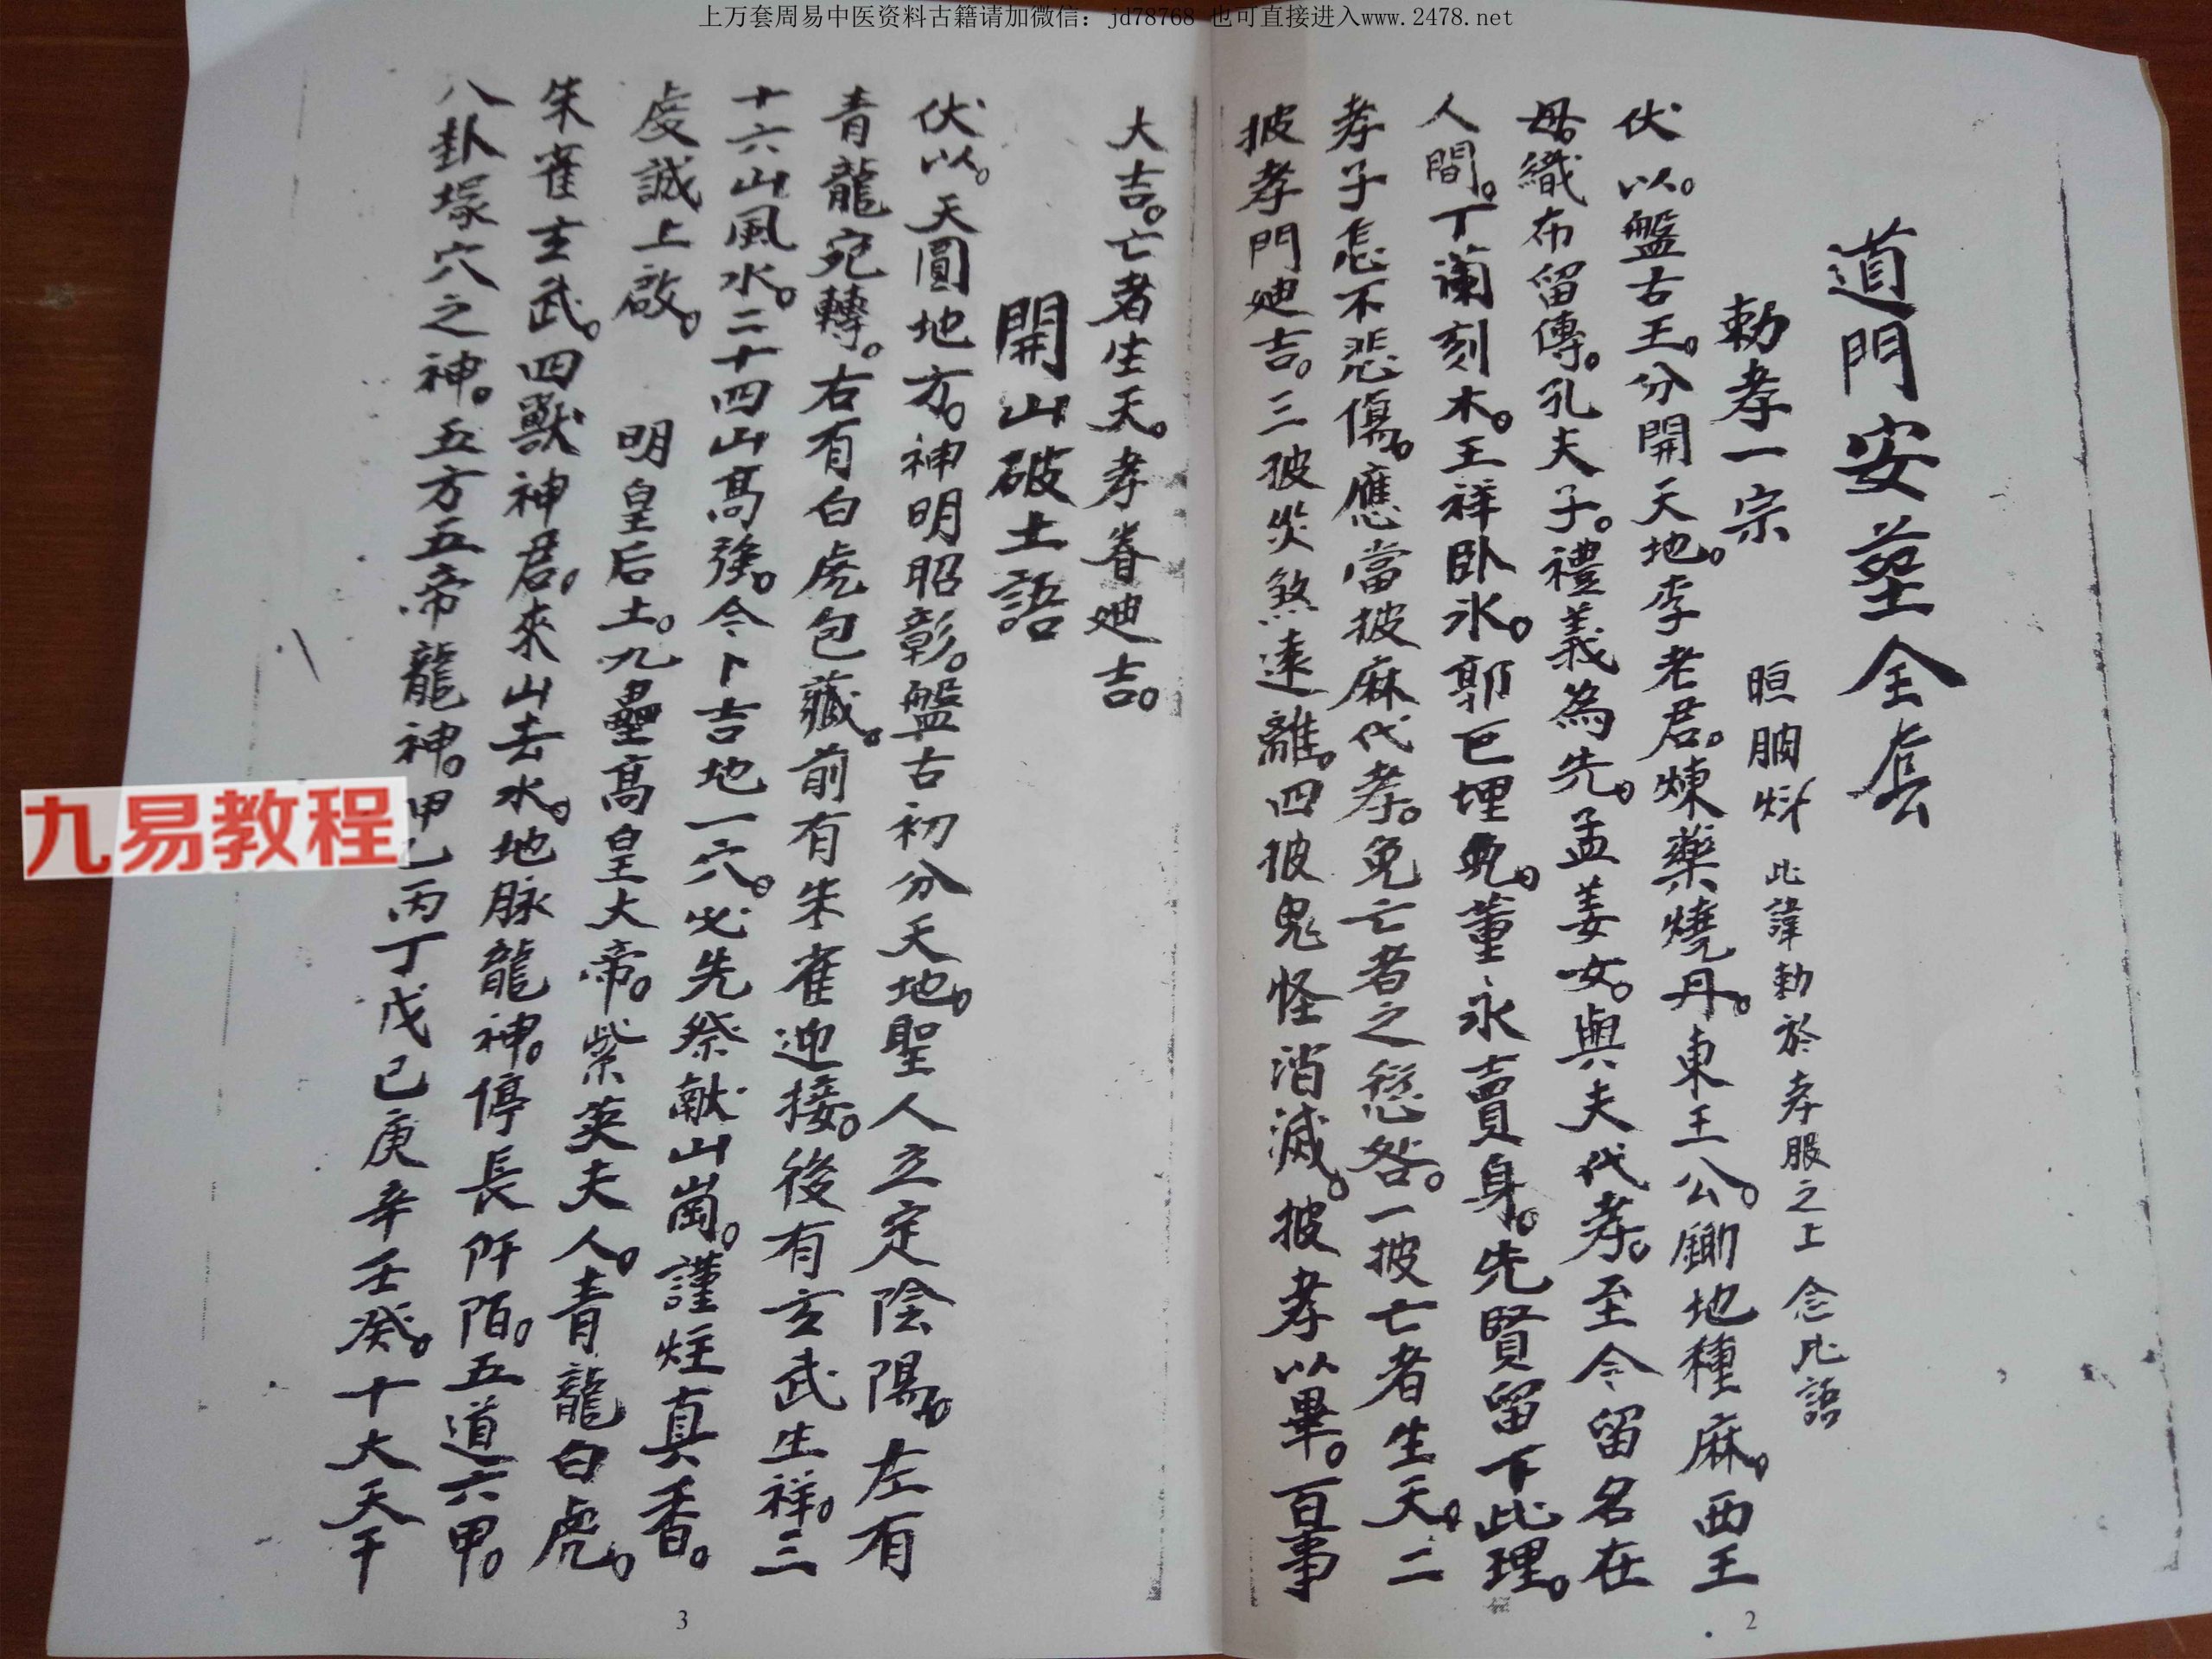 上万套周易中医资料古籍请加微信：jd78768 也可直接进入www.2478.net
道門安墓全套
勅孝一宗 此諱勅於孝服之上 念此語
伏以。盤古王。分開天地。李老君。煉藥燒丹。東王公。鋤地種麻。西王
母。織布留傳。孔夫子。禮義為先。孟姜女。與夫代孝。至今留名在
人間。丁蘭刻木。王祥卧氷。郭巨埋兒。董永賣身。先賢留下此理。
孝子怎不悲傷。應當披麻代孝。免亡者之愆咎。一披亡者生天。二
披孝門迪吉。三披災煞遠離。四披鬼怪消滅。披孝以畢。百事
2
大吉。亡者生天。孝眷迪吉。
開山破土語
伏以。天圓地方。神明昭彰。盤古初分天地。聖人立定陰陽。左有
青龍宛轉。右有白虎包藏。前有朱雀迎接。後有玄武生祥。三
十六山風水。二十四山高強。今卜吉地一穴。必先祭献山崗。謹炷真香。
虔誠上啟。 明皇后土。九壘高皇大帝。紫英夫人。青龍白虎。
朱雀玄武。四獸神君。來山去水。地脉龍神。停長阡陌。五道六甲。
八卦塚穴之神。五方五帝龍神。甲乙丙丁戊己庚辛壬癸。十大天干
3
九易教程